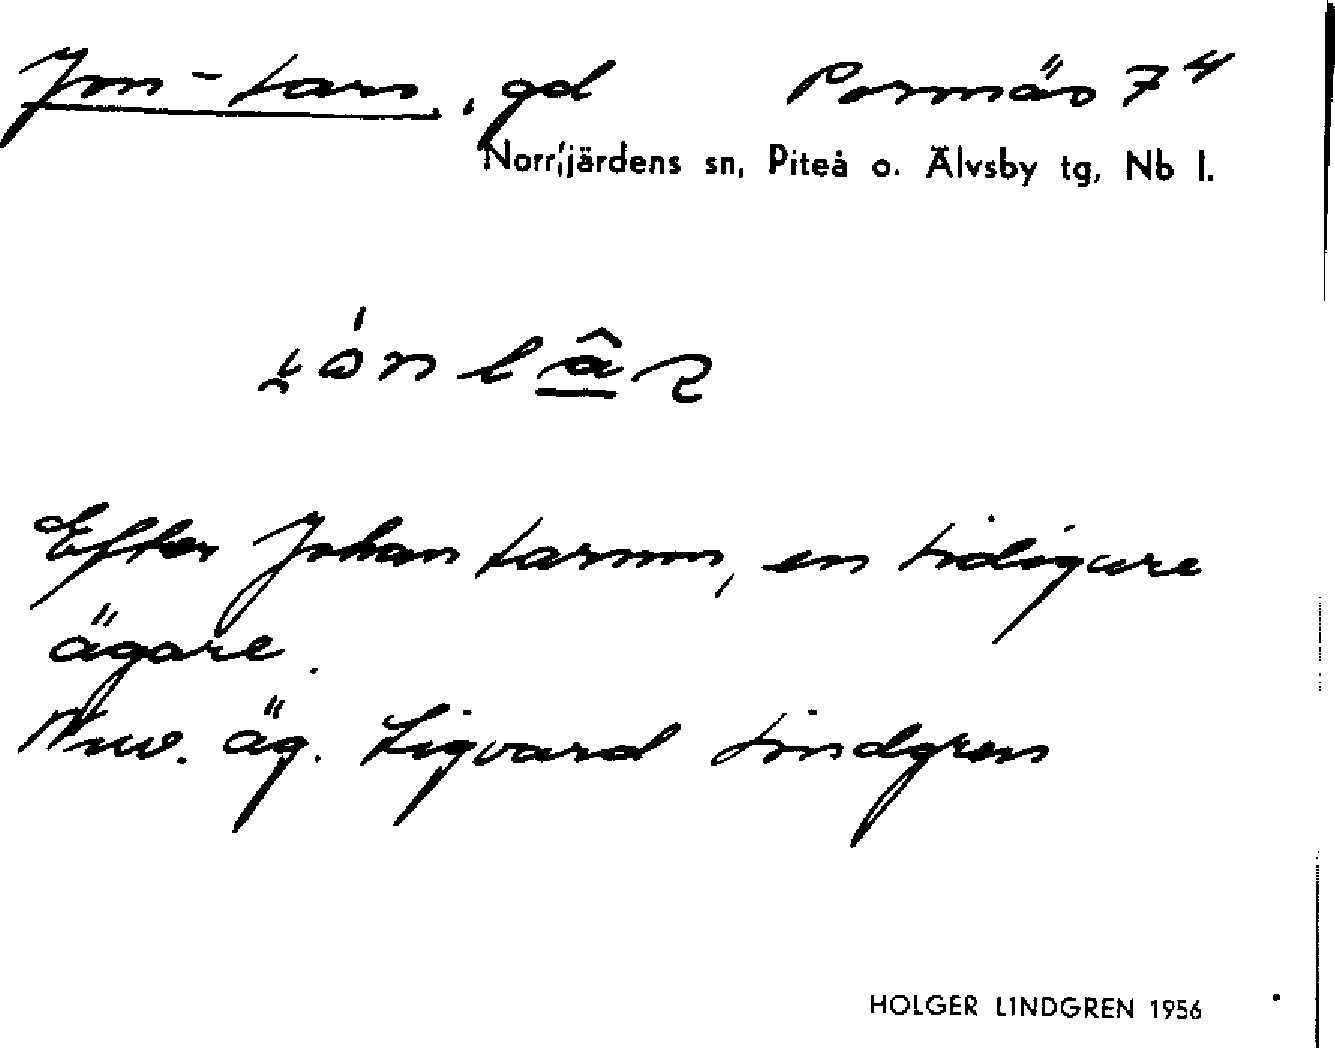 Jon-Lars, gd Porsnäs 7⁴
Norrfjärdens sn, Piteå o. Älvsby tg, Nb l.
Efter Johan Larsson, en tidigare
ägare.
Nuv. äg. Sigvard Lindgren
HOLGER LINDGREN 1956